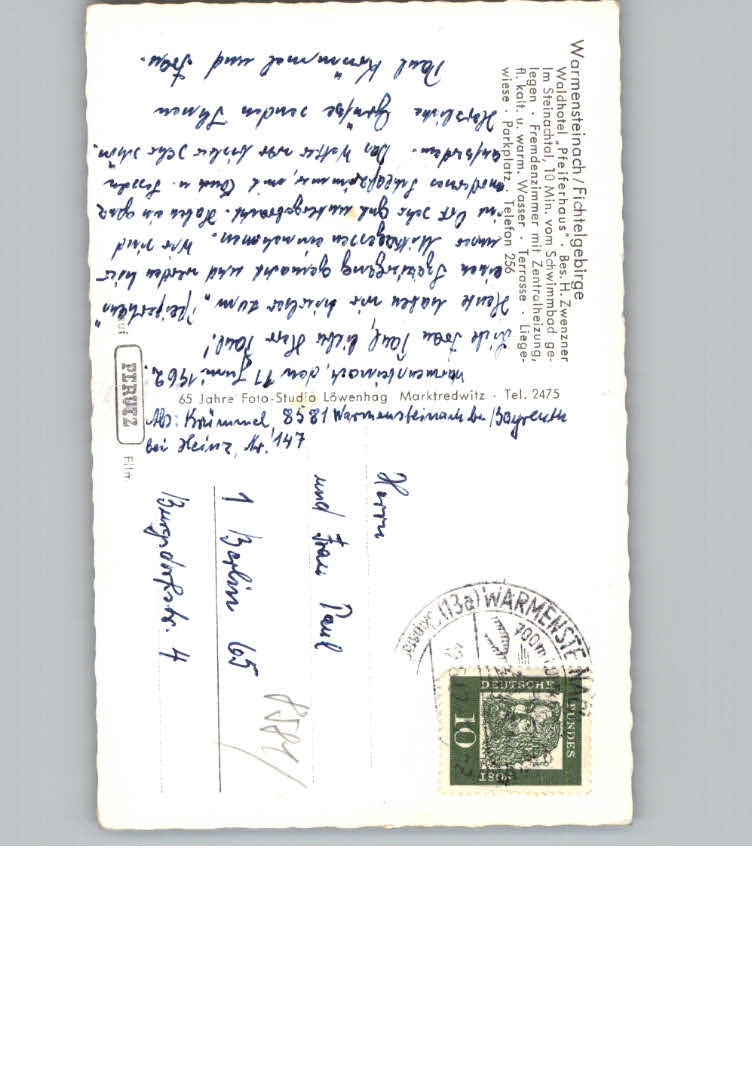 Warmensteinach / Fichtelgebirge
Waldhotel „Pfeiferhaus" · Bes. H. Zwenzner
Im Steinachtal, 10 Min. vom Schwimmbad ge-
legen · Fremdenzimmer mit Zentralheizung,
fl. kalt. u. warm. Wasser · Terrasse · Liege-
wiese · Parkplatz · Telefon 256
65 Jahre Foto-Studio Löwenhag Marktredwitz · Tel. 2475
auf PERUTZ Film
Abs: Krümmel, 8581 Warmensteinach /Bayreuth
bei Heinz, Nr. 147
Warmensteinach, den 11 Juni 1962.
Liebe Frau Paul, lieber Herr Paul!
Heute haben wir hierher zum „Pfeiferhaus"
einen Spaziergang gemacht und werden hier
unser Mittagessen einnehmen. Wir sind
im Ort sehr gut untergebracht. Haben ein ganz
modernes Schlafzimmer, mit Couch u. Sesseln
außerdem. Das Wetter war bisher sehr schön.
Herzliche Grüße senden Ihnen
Paul Krümmel und Frau.
Herrn
und Frau Paul
1 Berlin 65
Burgsdorfstr. 4
8581
(13a) WARMENSTEINACH
700m
DEUTSCHE
BUNDES
POST
10